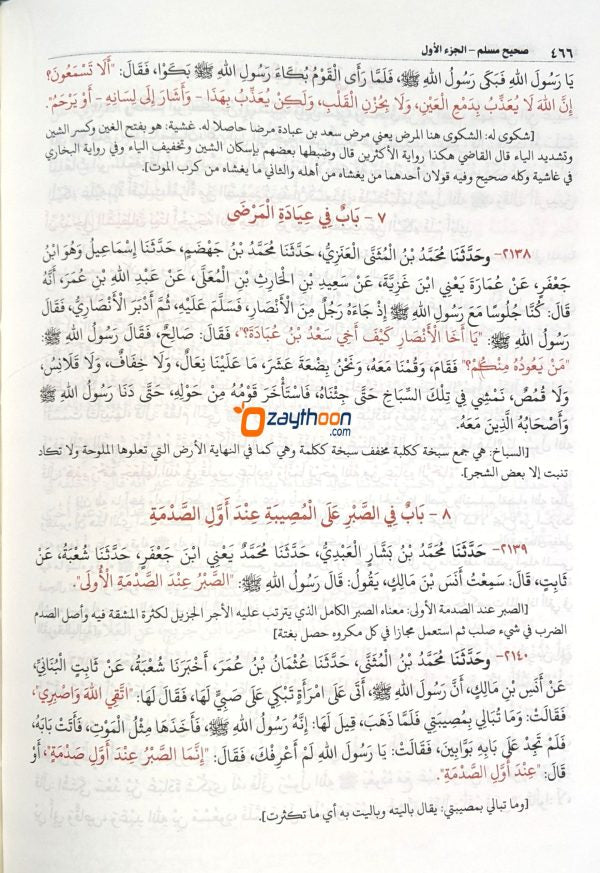 ٤٦٦ صحيح مسلم – الجزء الأول
يَا رَسُولَ اللهِ فَبَكَى رَسُولُ اللهِ ﷺ، فَلَمَّا رَأَى الْقَوْمُ بُكَاءَ رَسُولِ اللهِ ﷺ بَكَوْا، فَقَالَ: "أَلَا تَسْمَعُونَ؟
إِنَّ اللهَ لَا يُعَذِّبُ بِدَمْعِ الْعَيْنِ، وَلَا بِحُزْنِ الْقَلْبِ، وَلَكِنْ يُعَذِّبُ بِهَذَا – وَأَشَارَ إِلَى لِسَانِهِ – أَوْ يَرْحَمُ".
[شكوى له: الشكوى هنا المرض يعني مرض سعد بن عبادة مرضا حاصلا له. غشية: هو بفتح الغين وكسر الشين
وتشديد الياء قال القاضي هكذا رواية الأكثرين قال وضبطها بعضهم بإسكان الشين وتخفيف الياء وفي رواية البخاري
في غاشية وكله صحيح وفيه قولان أحدهما من يغشاه من أهله والثاني ما يغشاه من كرب الموت].
٧ - بَابٌ فِي عِيَادَةِ الْمَرْضَى
٢١٣٨- وحَدَّثَنَا مُحَمَّدُ بْنُ الْمُثَنَّى الْعَنَزِيُّ، حَدَّثَنَا مُحَمَّدُ بْنُ جَهْضَمٍ، حَدَّثَنَا إِسْمَاعِيلُ وَهُوَ ابْنُ
جَعْفَرٍ، عَنْ عُمَارَةَ يَعْنِي ابْنَ غَزِيَّةَ، عَنْ سَعِيدِ بْنِ الْحَارِثِ بْنِ الْمُعَلَّى، عَنْ عَبْدِ اللهِ بْنِ عُمَرَ، أَنَّهُ
قَالَ: كُنَّا جُلُوسًا مَعَ رَسُولِ اللهِ ﷺ إِذْ جَاءَهُ رَجُلٌ مِنَ الْأَنْصَارِ، فَسَلَّمَ عَلَيْهِ، ثُمَّ أَدْبَرَ الْأَنْصَارِيُّ، فَقَالَ
رَسُولُ اللهِ ﷺ: "يَا أَخَا الْأَنْصَارِ كَيْفَ أَخِي سَعْدُ بْنُ عُبَادَةَ؟"، فَقَالَ: صَالِحٌ، فَقَالَ رَسُولُ اللهِ ﷺ:
"مَنْ يَعُودُهُ مِنْكُمْ؟" فَقَامَ، وَقُمْنَا مَعَهُ، وَنَحْنُ بِضْعَةَ عَشَرَ، مَا عَلَيْنَا نِعَالٌ، وَلَا خِفَافٌ، وَلَا قَلَانِسُ،
وَلَا قُمُصٌ، نَمْشِي فِي تِلْكَ السِّبَاخِ حَتَّى جِئْنَاهُ، فَاسْتَأْخَرَ قَوْمُهُ مِنْ حَوْلِهِ، حَتَّى دَنَا رَسُولُ اللهِ ﷺ
وَأَصْحَابُهُ الَّذِينَ مَعَهُ.
zaythoon
.com
[السباخ: هي جمع سبخة ككلبة مخفف سبخة ككلمة وهي كما في النهاية الأرض التي تعلوها الملوحة ولا تكاد
تنبت إلا بعض الشجر].
٨ - بَابٌ فِي الصَّبْرِ عَلَى الْمُصِيبَةِ عِنْدَ أَوَّلِ الصَّدْمَةِ
٢١٣٩- حَدَّثَنَا مُحَمَّدُ بْنُ بَشَّارٍ الْعَبْدِيُّ، حَدَّثَنَا مُحَمَّدٌ يَعْنِي ابْنَ جَعْفَرٍ، حَدَّثَنَا شُعْبَةُ، عَنْ
ثَابِتٍ، قَالَ: سَمِعْتُ أَنَسَ بْنَ مَالِكٍ، يَقُولُ: قَالَ رَسُولُ اللهِ ﷺ: "الصَّبْرُ عِنْدَ الصَّدْمَةِ الْأُولَى".
[الصبر عند الصدمة الأولى: معناه الصبر الكامل الذي يترتب عليه الأجر الجزيل لكثرة المشقة فيه وأصل الصدم
الضرب في شيء صلب ثم استعمل مجازا في كل مكروه حصل بغتة]
٢١٤٠- وحَدَّثَنَا مُحَمَّدُ بْنُ الْمُثَنَّى، حَدَّثَنَا عُثْمَانُ بْنُ عُمَرَ، أَخْبَرَنَا شُعْبَةُ، عَنْ ثَابِتٍ الْبُنَانِيِّ،
عَنْ أَنَسِ بْنِ مَالِكٍ، أَنَّ رَسُولَ اللهِ ﷺ، أَتَى عَلَى امْرَأَةٍ تَبْكِي عَلَى صَبِيٍّ لَهَا، فَقَالَ لَهَا: "اتَّقِي اللهَ وَاصْبِرِي"،
فَقَالَتْ: وَمَا تُبَالِي بِمُصِيبَتِي فَلَمَّا ذَهَبَ، قِيلَ لَهَا: إِنَّهُ رَسُولُ اللهِ ﷺ، فَأَخَذَهَا مِثْلُ الْمَوْتِ، فَأَتَتْ بَابَهُ،
فَلَمْ تَجِدْ عَلَى بَابِهِ بَوَّابِينَ، فَقَالَتْ: يَا رَسُولَ اللهِ لَمْ أَعْرِفْكَ، فَقَالَ: "إِنَّمَا الصَّبْرُ عِنْدَ أَوَّلِ صَدْمَةٍ"، أَوْ
قَالَ: "عِنْدَ أَوَّلِ الصَّدْمَةِ".
[وما تبالي بمصيبتي: يقال باليته وباليت به أي ما تكثرت].